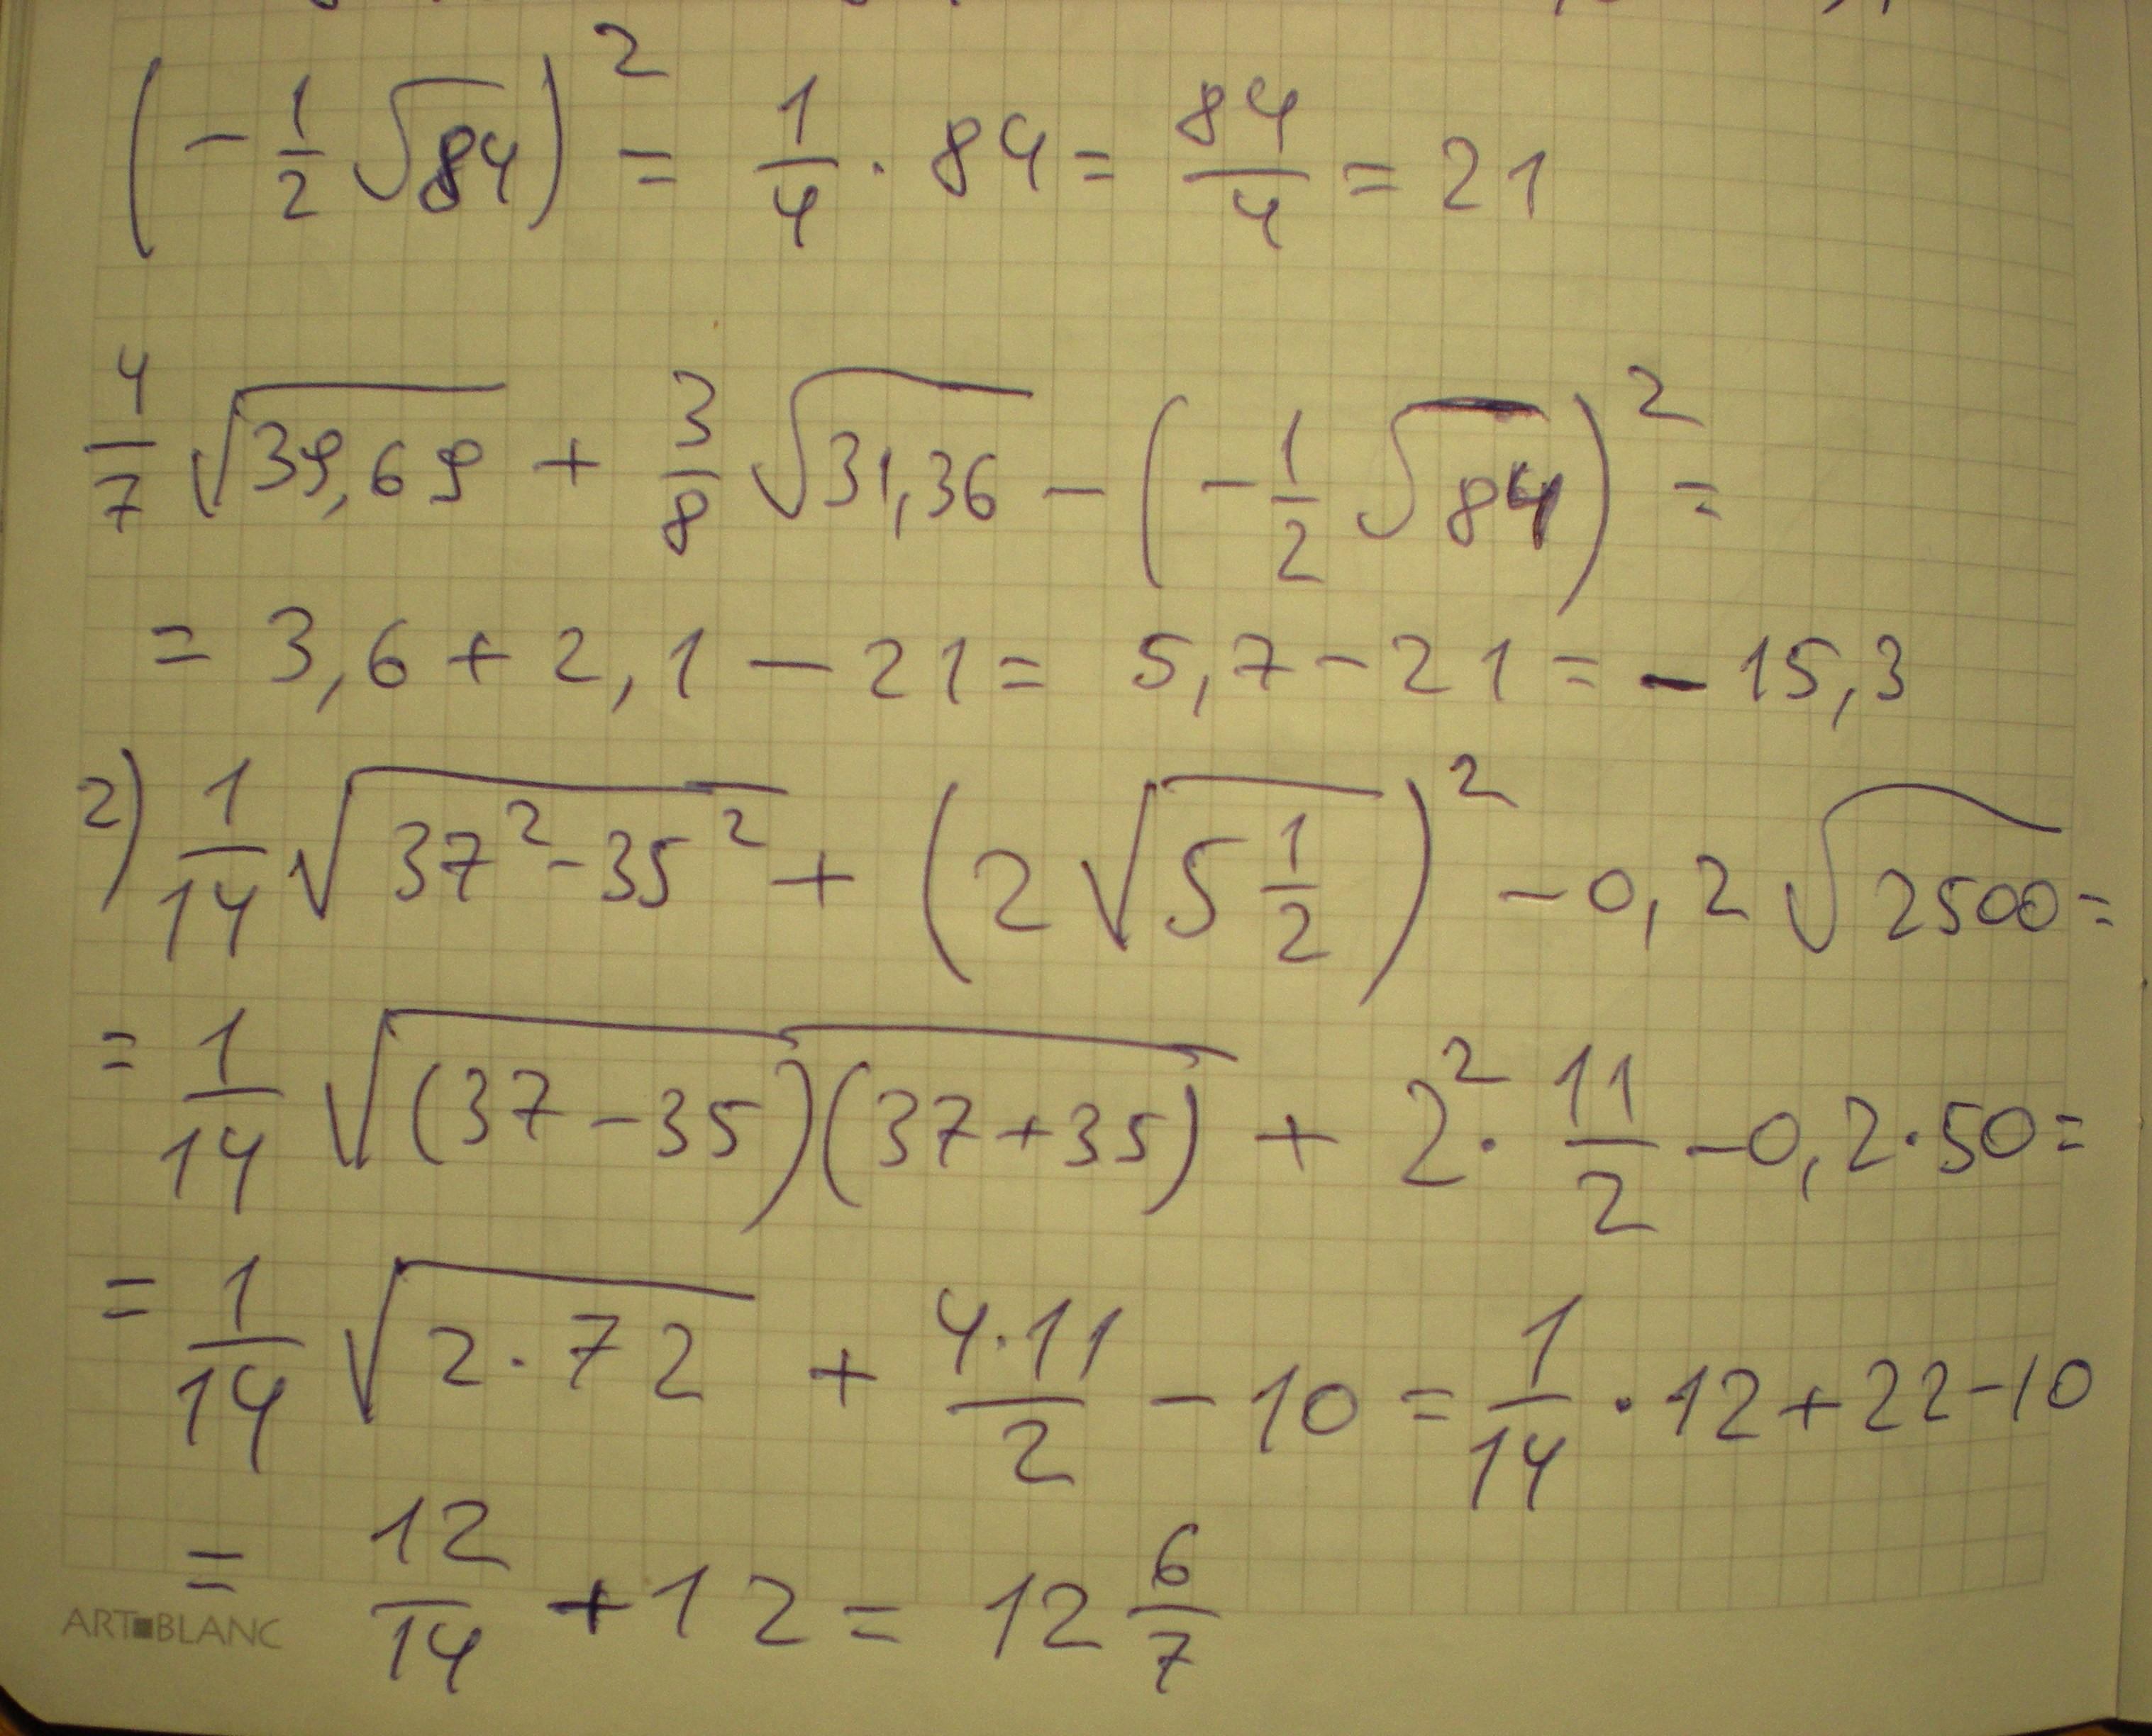 (-1/2 √84)² = 1/4 · 84 = 84/4 = 21
4/7 √39,69 + 3/8 √31,36 - (-1/2 √84)² =
= 3,6 + 2,1 - 21 = 5,7 - 21 = - 15,3
2) 1/14 √(37² - 35²) + (2 √(5 1/2))² - 0,2 √2500 =
= 1/14 √((37 - 35)(37 + 35)) + 2² · 11/2 - 0,2 · 50 =
= 1/14 √(2 · 72) + 4·11/2 - 10 = 1/14 · 12 + 22 - 10
= 12/14 + 12 = 12 6/7
ART■BLANC